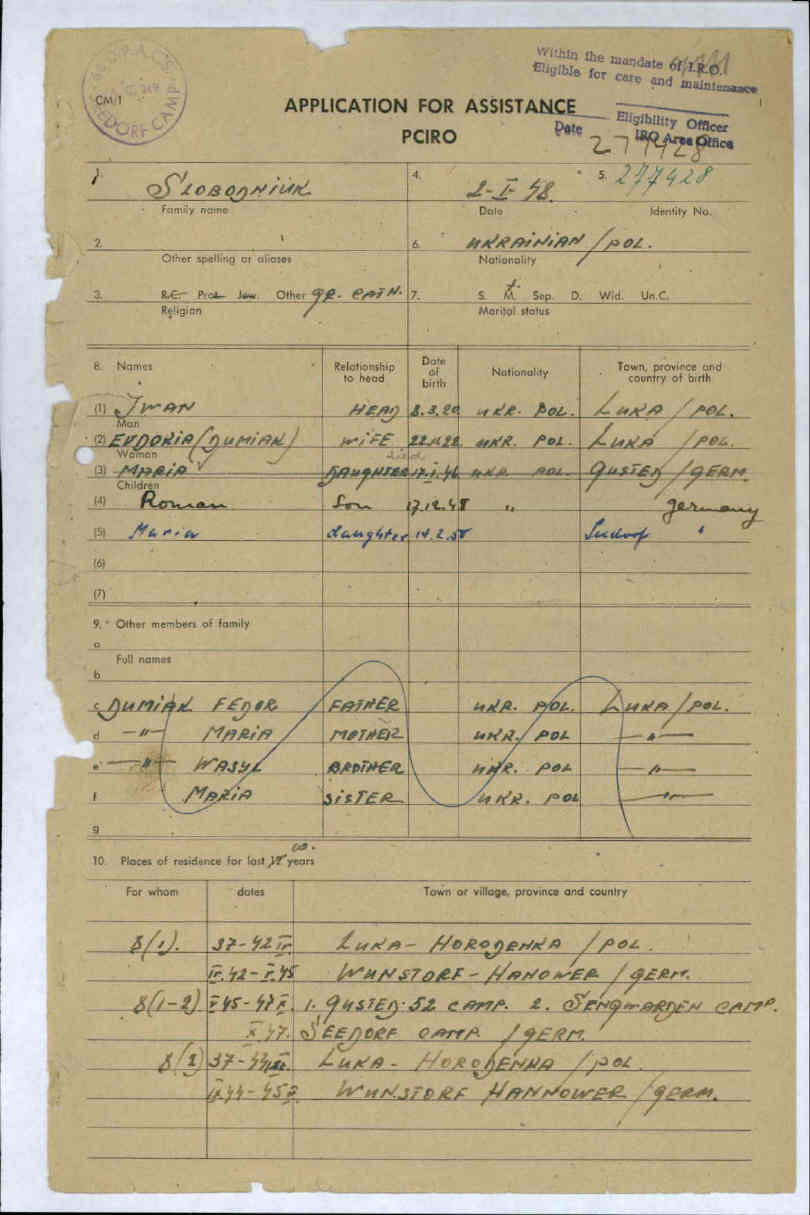 CM/1
SEEDORF CAMP
Within the mandate of I.R.O.
Eligible for care and maintenance
Eligibility Officer
Date IRO Area Office
277428
APPLICATION FOR ASSISTANCE
PCIRO
1. SLOBODNIUK 4. 2-I-48. 5. 277428
Family name Date Identity No.
2. 6. UKRAINIAN/POL.
Other spelling or aliases Nationality
3. R.C. Prot. Jew. Other gr. CATH. 7. S. M. Sep. D. Wid. Un.C.
Religion Marital status
8. Names Relationship to head Date of birth Nationality Town, province and country of birth
(1) IWAN HEAD 8.3.20 UKR. POL. LUKA/POL.
Man
(2) EVDOKIA (DUMIAK) WIFE UKR. POL. LUKA /POL.
Woman died
(3) MARIA DAUGHTER UKR. POL. GUSTED/GERM.
Children
(4) Roman Son 17.12.48 " Germany
(5) Maria daughter 14.2.50 "
(6)
(7)
9. Other members of family
a
Full names
b
c DUMIAK FEDOR FATHER UKR. POL. LUKA/POL.
d —"— MARIA MOTHER UKR. POL —"—
e —"— WASYL BROTHER UKR. POL —"—
f MARIA SISTER UKR. POL —"—
g
10. Places of residence for last years
For whom dates Town or village, province and country
8(1). 37-42 IV. LUKA-HORODENKA/POL.
IV.42-V.45 WUNSTORF-HANOWER/GERM.
8(1-2) V45-47 X. 1. GUSTED-52 CAMP. 2. SENGWARDEN CAMP.
X.47. SEEDORF CAMP/GERM.
8(2) 37-44 LUKA-HORODENKA/POL.
44-45 WUNSTORF HANNOWER/GERM.